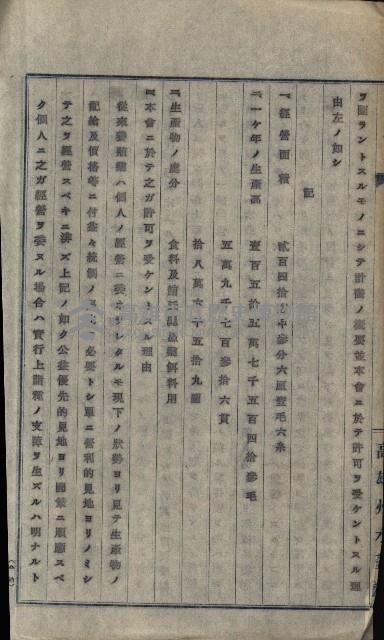 ヲ圖ラントスルモノニシテ計畫ノ概要並本會ニ於テ許可ヲ受ケントスル理
由左ノ如シ
記
一、經營面積 貳百四拾 甲參分六厘壹毛六糸
二、一ケ年ノ生產高 壹百五拾五萬七千五百四拾參毛
五萬九千七百參拾六貫
拾八萬六千五拾九圓
三、生產物ノ處分 食料及 飼料用
四、本會ニ於テ之ガ許可ヲ受ケントスル理由
從來養殖 ハ個人ノ經營ニ委ネラレタルモ現下ノ狀勢ヨリ見テ生產物ノ
配給及價格等ニ付 々統制ノ 必要トシ單ニ營利的見地ヨリノミシ
テ之ヲ經營スベキニ非ズ上記ノ如ク公益優先的見地ヨリ國策ニ順應スベ
ク個人ニ之ガ經營ヲ委スル場合ハ實行上諸種ノ支障ヲ生ズルハ明ナルト
高雄州水產